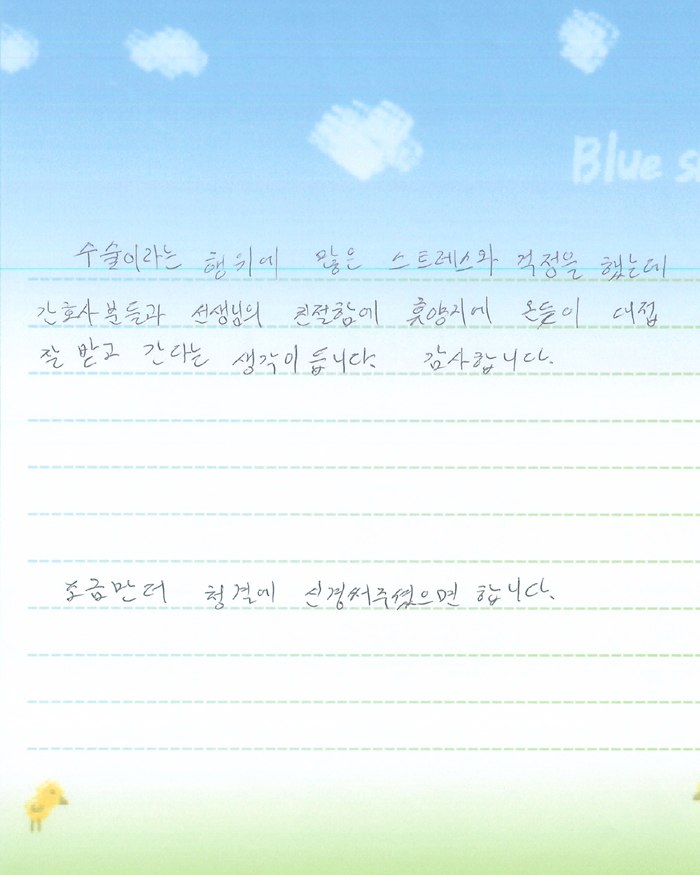 Blue s
수술이라는 행위에 많은 스트레스와 걱정을 했는데
간호사분들과 선생님의 친절함에 휴양지에 온듯이 대접
잘 받고 간다는 생각이 듭니다. 감사합니다.
조금만 더 청결에 신경써주셨으면 합니다.